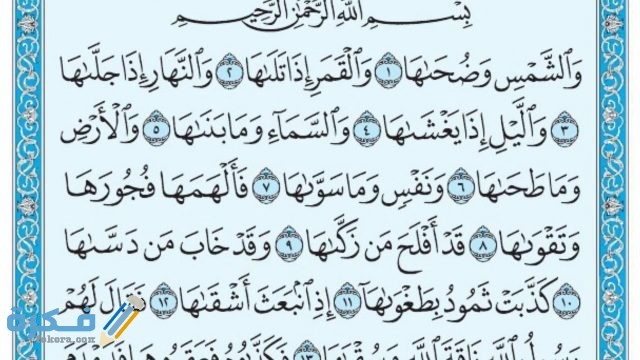 بِسْمِ ٱللَّهِ ٱلرَّحْمَٰنِ ٱلرَّحِيمِ
وَٱلشَّمْسِ وَضُحَىٰهَا ١ وَٱلْقَمَرِ إِذَا تَلَىٰهَا ٢ وَٱلنَّهَارِ إِذَا جَلَّىٰهَا
٣ وَٱلَّيْلِ إِذَا يَغْشَىٰهَا ٤ وَٱلسَّمَآءِ وَمَا بَنَىٰهَا ٥ وَٱلْأَرْضِ
وَمَا طَحَىٰهَا ٦ وَنَفْسٍ وَمَا سَوَّىٰهَا ٧ فَأَلْهَمَهَا فُجُورَهَا
وَتَقْوَىٰهَا ٨ قَدْ أَفْلَحَ مَن زَكَّىٰهَا ٩ وَقَدْ خَابَ مَن دَسَّىٰهَا
١٠ كَذَّبَتْ ثَمُودُ بِطَغْوَىٰهَآ ١١ إِذِ ٱنۢبَعَثَ أَشْقَىٰهَا ١٢ فَقَالَ لَهُمْ
رَسُولُ ٱللَّهِ نَاقَةَ ٱللَّهِ وَسُقْيَٰهَا ١٣ فَكَذَّبُوهُ فَعَقَرُوهَا
فكرة